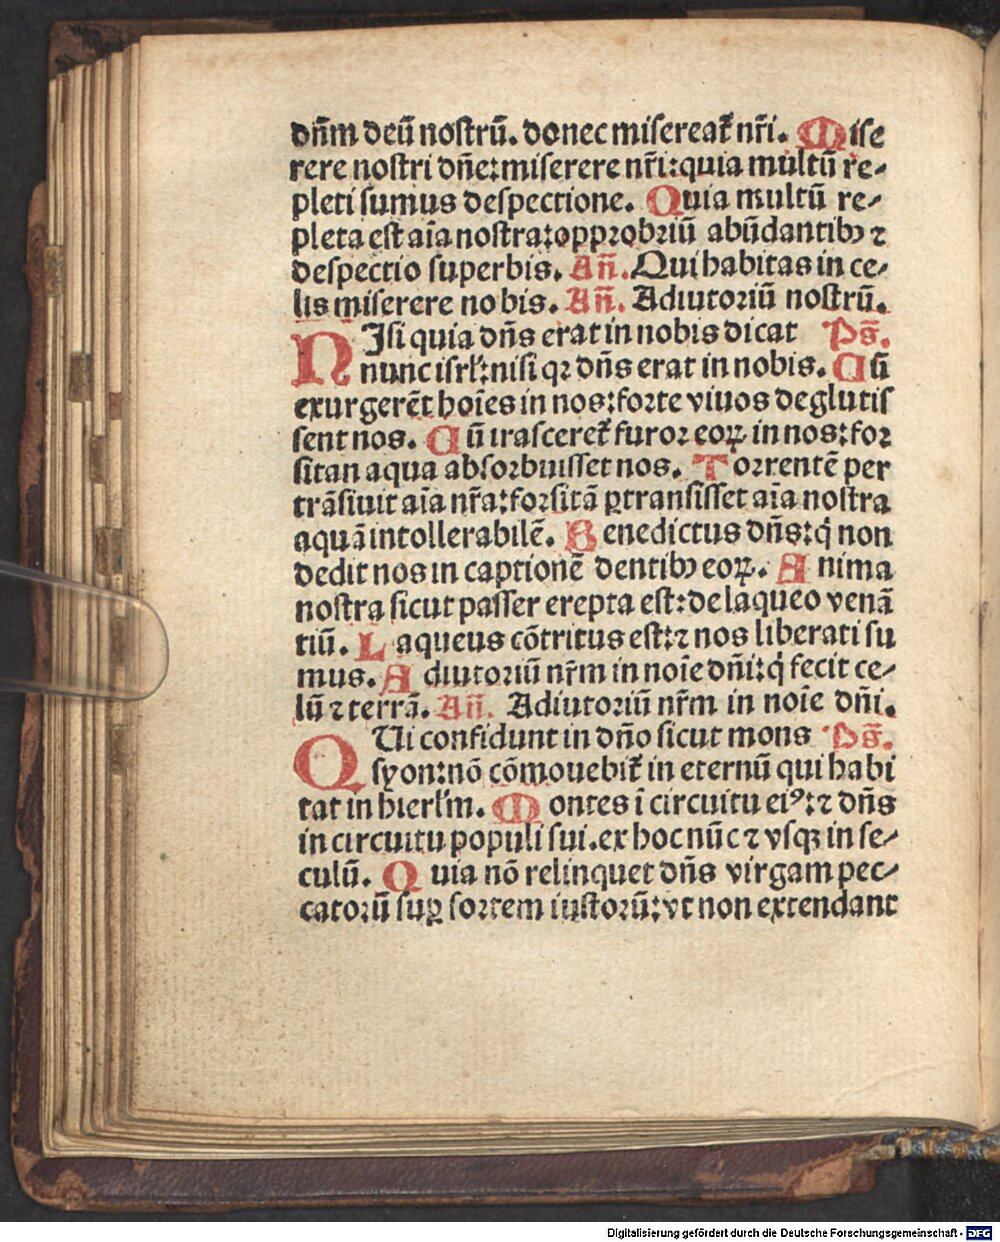 dñm deū nostrū. donec misereat᷑ nr̃i. Mise
rere nostri dñe: miserere nr̃i: quia multū re-
pleti sumus despectione. Quia multū re-
pleta est aīa nostra: opprobriū abūdantibꝫ ⁊
despectio superbis. Añ. Qui habitas in ce-
lis miserere nobis. Añ. Adiutoriū nostrū.
NIsi quia dñs erat in nobis dicat Ps̄.
nunc isrl̄: nisi qꝛ dñs erat in nobis. Cū
exurgerēt hoīes in nos: forte viuos deglutis
sent nos. Cū irasceret᷑ furor eoꝝ in nos: for
sitan aqua absorbuisset nos. Torrentē per
trāsiuit aīa nr̃a: forsitā ꝑtransisset aīa nostra
aquā intollerabilē. Benedictus dñs: q̇ non
dedit nos in captionē dentibꝫ eoꝝ. Anima
nostra sicut passer erepta est: de laqueo venā
tiū. Laqueus cōtritus est: ⁊ nos liberati su
mus. Adiutoriū nr̃m in noīe dñi: q̇ fecit ce-
lū ⁊ terrā. Añ. Adiutoriū nr̃m in noīe dñi.
QUi confidunt in dño sicut mons Ps̄.
syon: nō cōmouebit᷑ in eternū qui habi
tat in hierl̄m. Montes ī circuitu eiꝰ: ⁊ dñs
in circuitu populi sui. ex hoc nūc ⁊ vsqꝫ in se-
culū. Quia nō relinquet dñs virgam pec-
catorū suꝑ sortem iustorū: vt non extendant
Digitalisierung gefördert durch die Deutsche Forschungsgemeinschaft - DFG